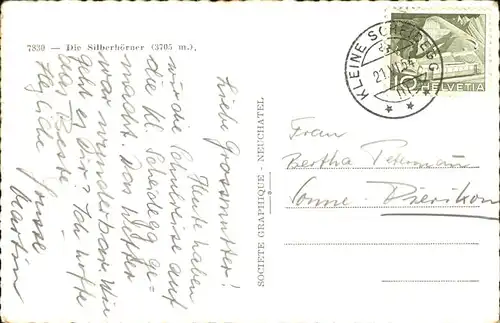 7830 - Die Silberhörner (3705 m.),
Liebe Grossmutter!
Heute haben
wir die Schulreise auf
die Kl. Scheidegg ge-
macht. Das Wetter
war wunderbar. Wie
geht es Dir? Ich hoffe
das Beste
Herzliche Grüsse
Martin
SOCIETE GRAPHIQUE - NEUCHATEL
KLEINE SCHEIDEGG
21.VI.
10
HELVETIA
Frau
Bertha Petermann
Sonne. Dierikon